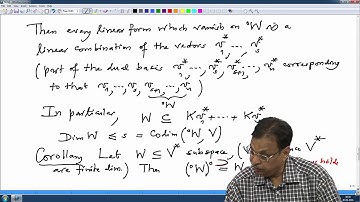 Then every linear form which vanish on °W is a
linear combination of the vectors v₁*, ⋯, vₛ*
(part of the dual basis v₁*, ⋯, vₛ*, vₛ₊₁*, ⋯, vₙ* corresponding
to that v₁, ⋯, vₛ, vₛ₊₁, ⋯, vₙ)
°W
In particular, W ⊆ Kv₁* + ⋯ + Kvₛ*
Dim W ≤ s = Codim (°W, V)
Corollary Let W ⊆ V* subspace (V V*
are finite dim.) Then (°W)° ⊇ W holds